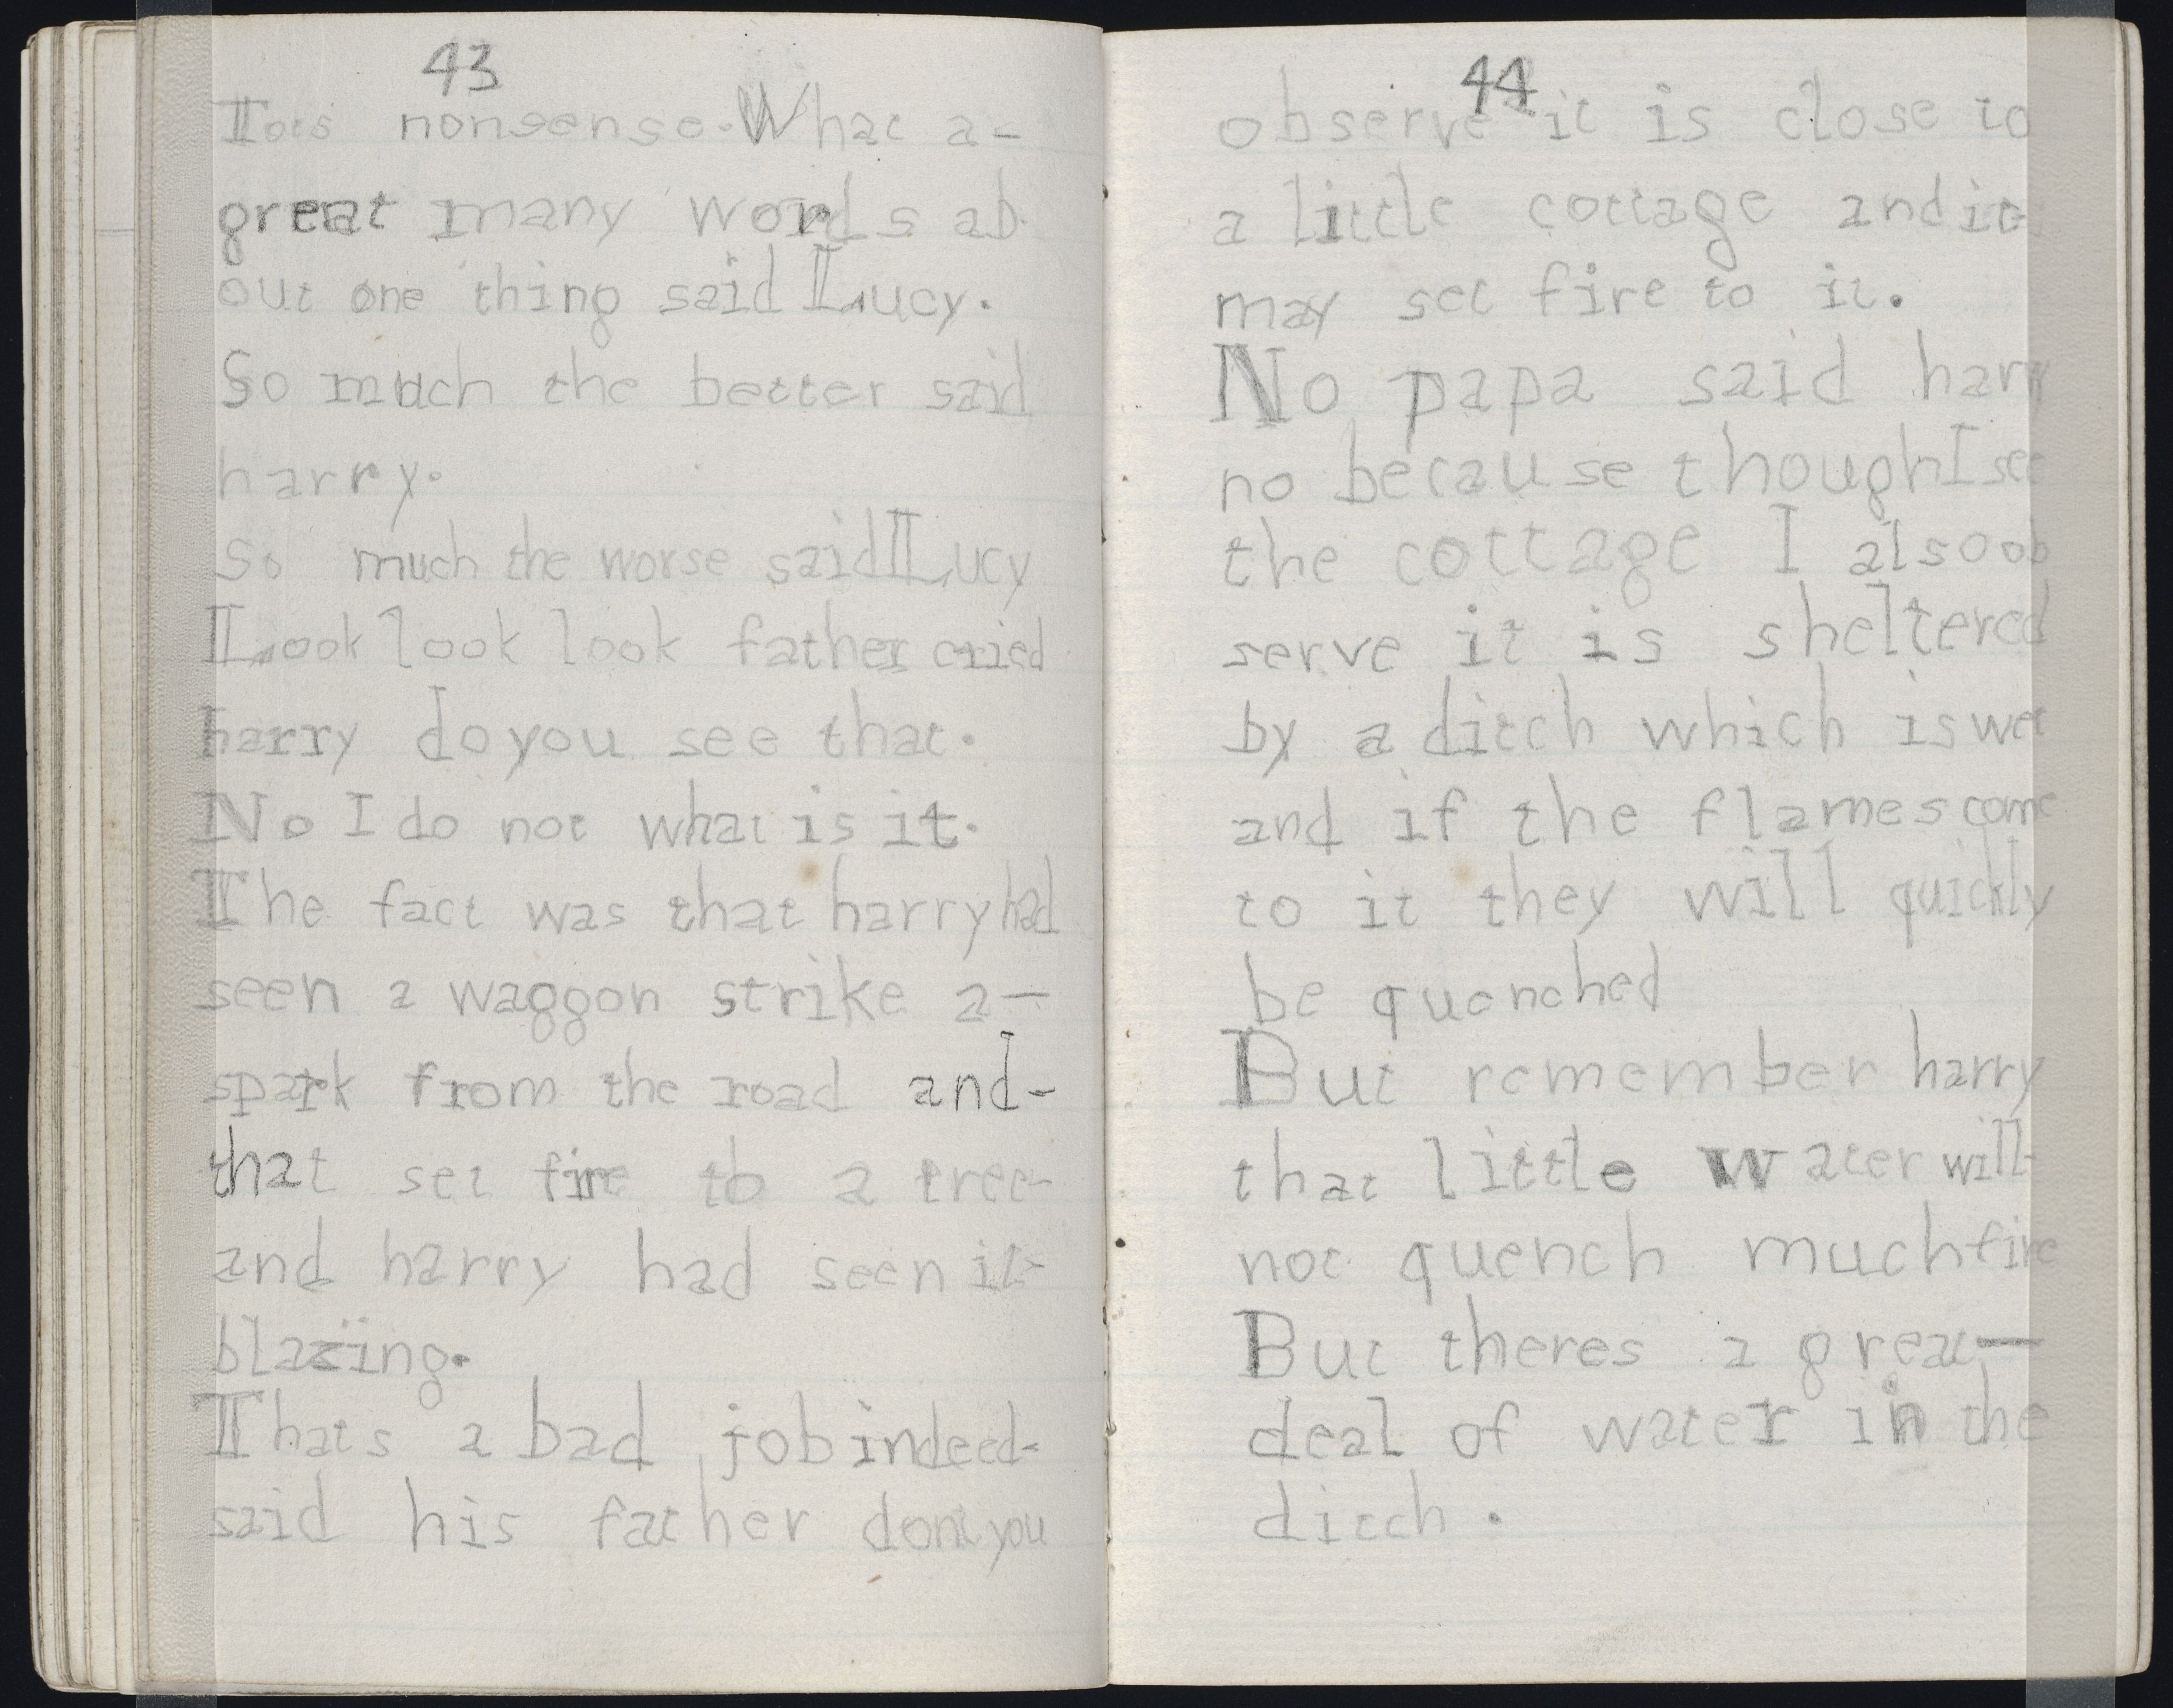 43
Tots nonsense. What a-
great many words ab
out one thing said Lucy.
So much the better said
harry.
So much the worse said Lucy
Look look look father cried
harry do you see that.
No I do not what is it.
The fact was that harry had
seen a waggon strike a-
spark from the road and-
that set fire to a tree-
and harry had seen it-
blazing.
Thats a bad job indeed-
said his father dont you
44
observe it is close to
a little cottage and it-
may set fire to it.
No papa said harry
no because though I see
the cottage I also ob
serve it is sheltered
by a ditch which is wet
and if the flames come
to it they will quickly
be quenched
But remember harry
that little water will-
not quench much fire
But theres a great-
deal of water in the
ditch.